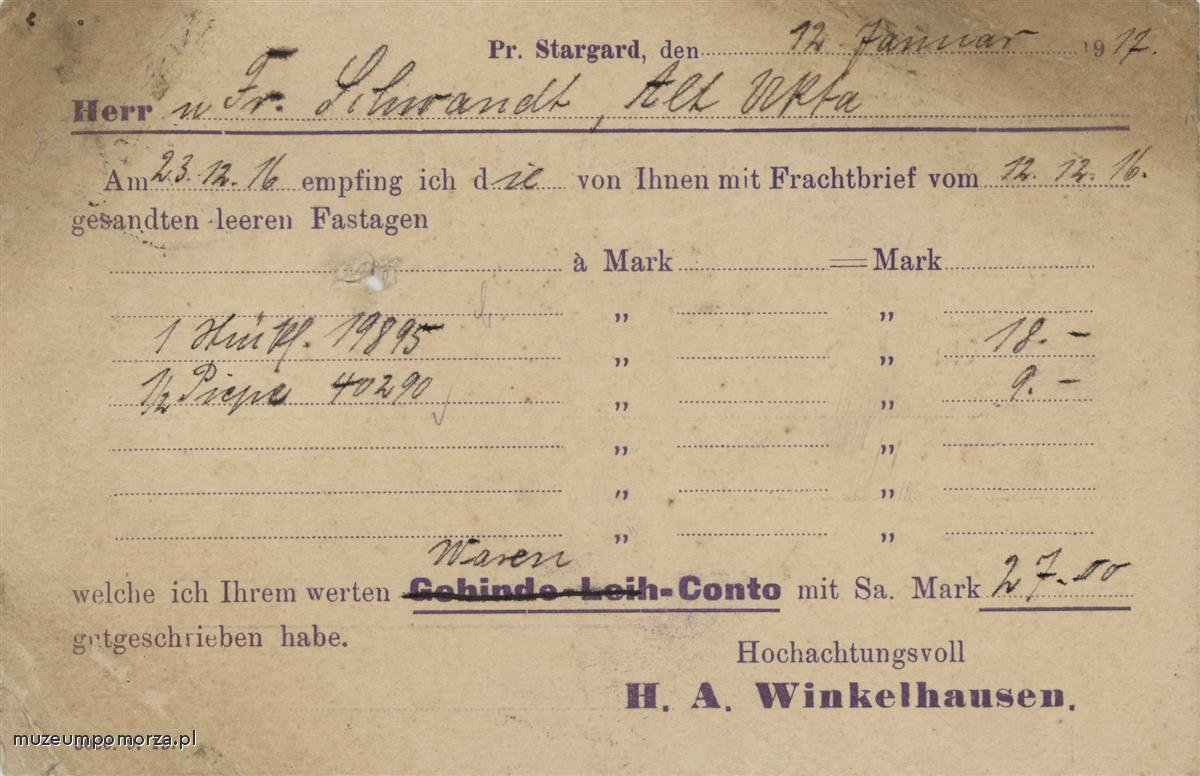 Pr. Stargard, den 12. Januar 1917.
Herr n Fr. Schwandt, Alt Ukta
Am 23.12.16 empfing ich die von Ihnen mit Frachtbrief vom 12.12.16.
gesandten leeren Fastagen
à Mark = Mark
„ „
1 19895 „ „ 18.-
1/2 Piepe 40290 „ „ 9.-
„ „
„ „
„ „
Waren
welche ich Ihrem werten Gebinde-Leih-Conto mit Sa. Mark 27.00
gutgeschrieben habe.
Hochachtungsvoll
H. A. Winkelhausen.
muzeumpomorza.pl